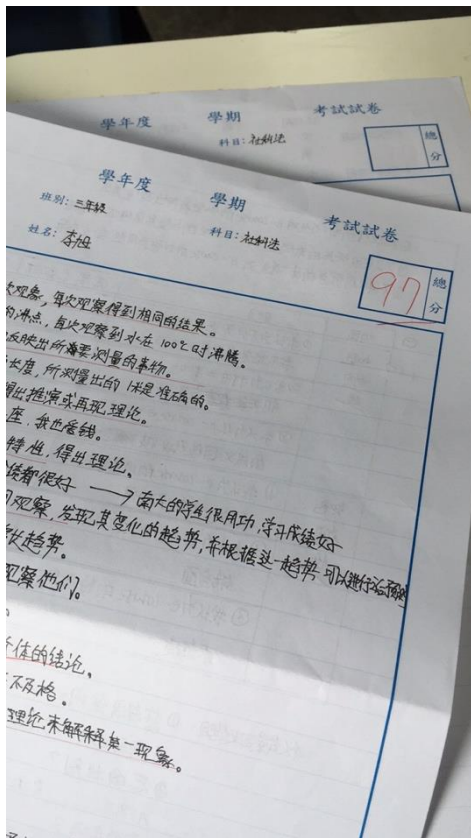 學年度 學期 考試試卷
科目: 社科法
總分
學年度 學期 考試試卷
班別: 三年級
姓名: 李旭 科目: 社科法
97 總分
次观象，每次观察得到相同的结果。
的沸点，每次观察到水在100℃时沸腾。
反映出所需要测量的事物。
长度，所测量出的1米是准确的。
得出推案或再现理论。
座，我也爱钱。
特性，得出理论。
绩都很好 → 南大的学生很用功，学习成绩好
观察，发现其变化的趋势，并根据这一趋势，可以进行预
趋势。
观察他们。
体的结论。
不及格。
理论来解释某一现象。